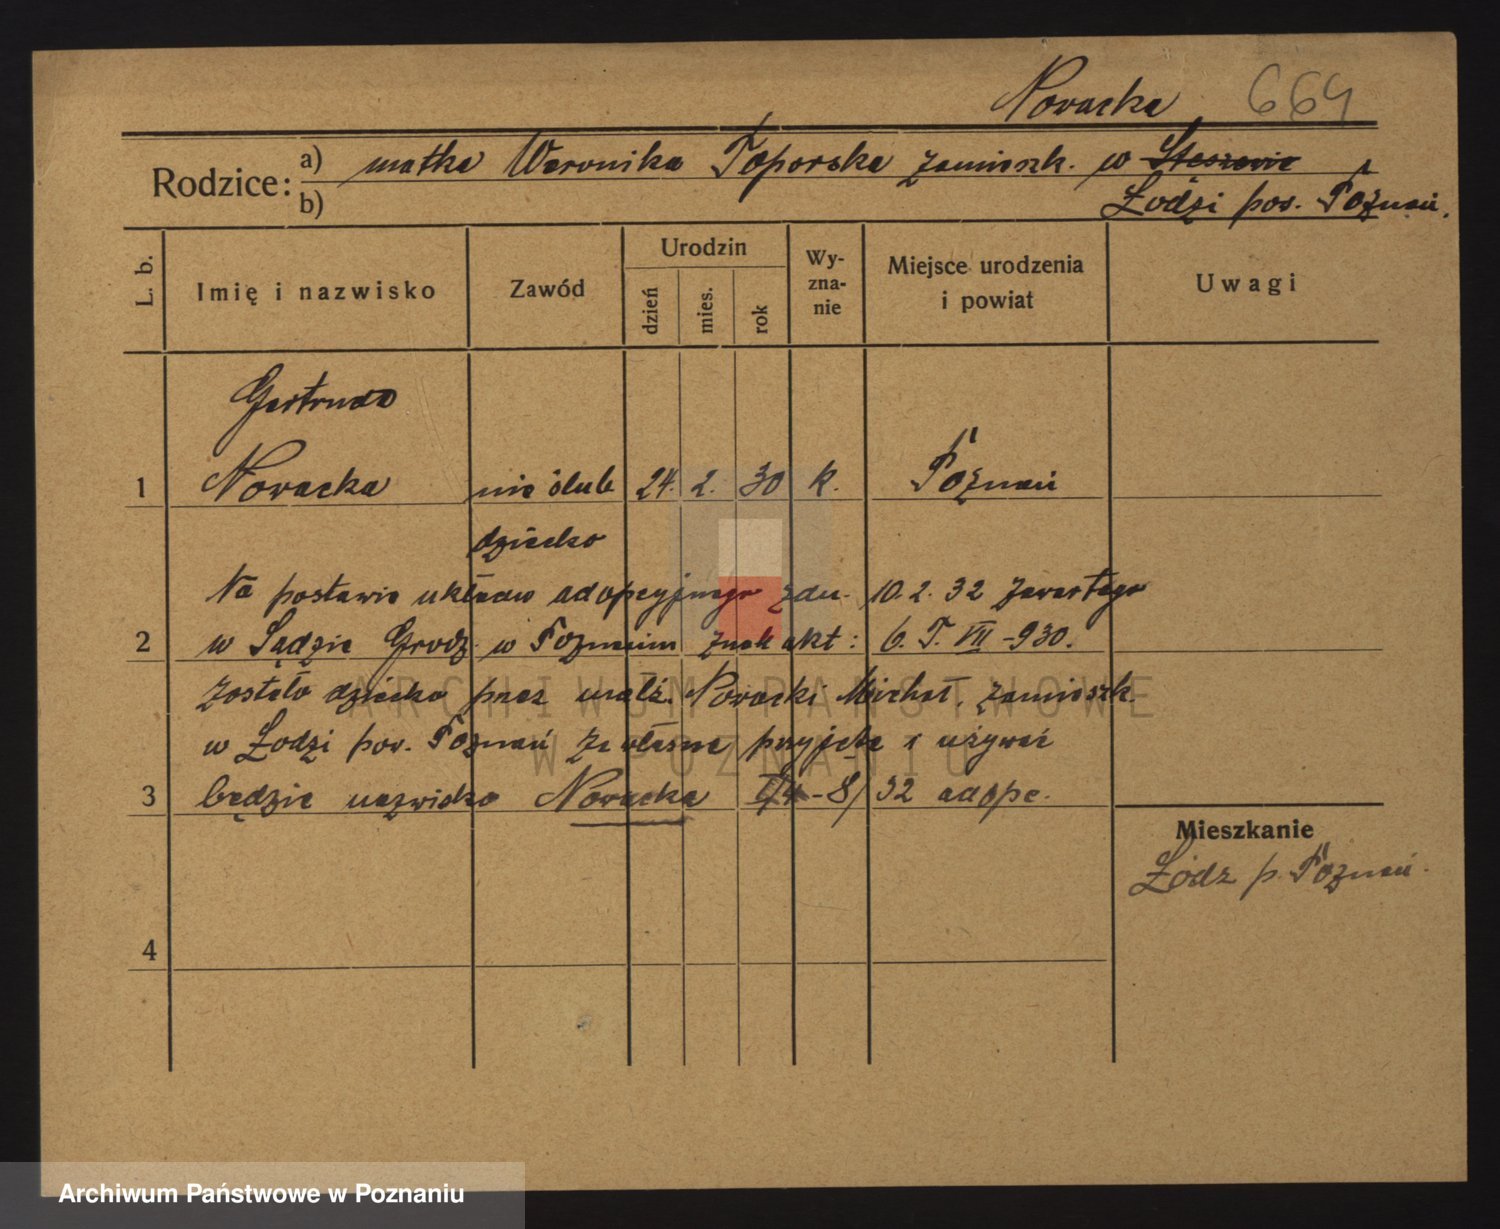 Nowacka 664
Rodzice: a) matka Weronika Toporska zamieszk. w Stęszewie
b) Łodzi pow. Poznań.
L. b. Imię i nazwisko Zawód Urodzin dzień mies. rok Wy-zna-nie Miejsce urodzenia i powiat Uwagi
Gertruda
1 Nowacka nie ślub 24. 2. 30 k. Poznań
dziecko
Na postawie układu adopcyjnego z dn. 10.2.32 zawartego
2 w Sądzie Grodz. w Poznaniu znak akt: 6. T. VII - 930.
zostało dziecko przez małż. Nowacki Michał, zamieszk.
w Łodzi pow. Poznań za własne przyjęte i używać
3 będzie nazwisko Nowacka - 8/32 adopc.
Mieszkanie
Łódź p. Poznań.
4
ARCHIWUM PAŃSTWOWE
W POZNANIU
Archiwum Państwowe w Poznaniu